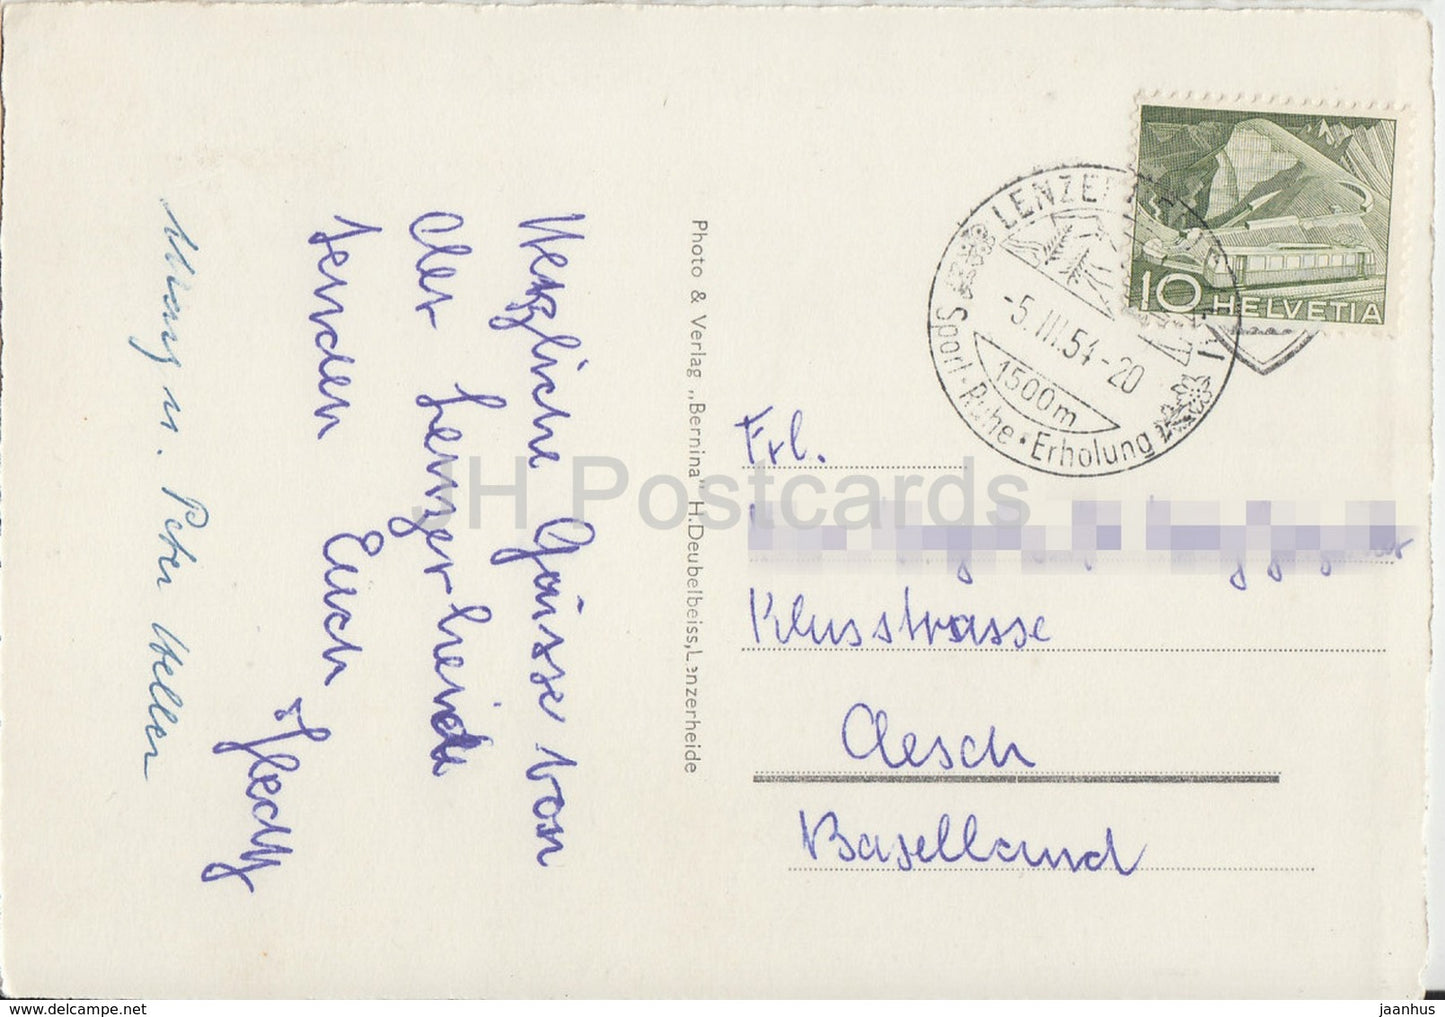 Herzliche Grüsse von
der Lenzerheide
senden Euch
Hedy
u. Peter Heller
Photo & Verlag „Bernina" H.Deubelbeiss, Lenzerheide
10 HELVETIA
LENZERHEIDE
-5.III.54-20
1500m
Sport · Ruhe · Erholung
Frl.
Klusstrasse
Aesch
Baselland
JH Postcards
www.delcampe.net
jaanhus